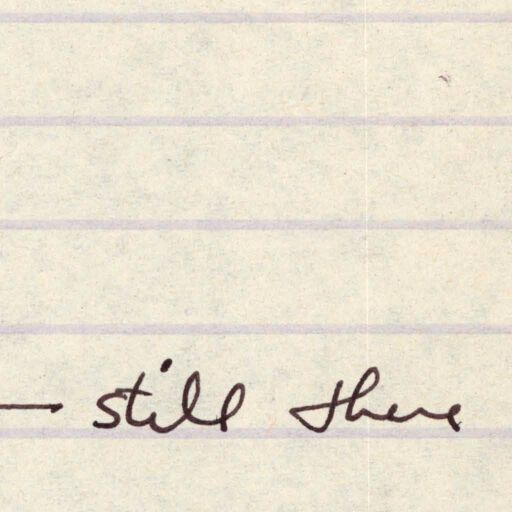 — still there